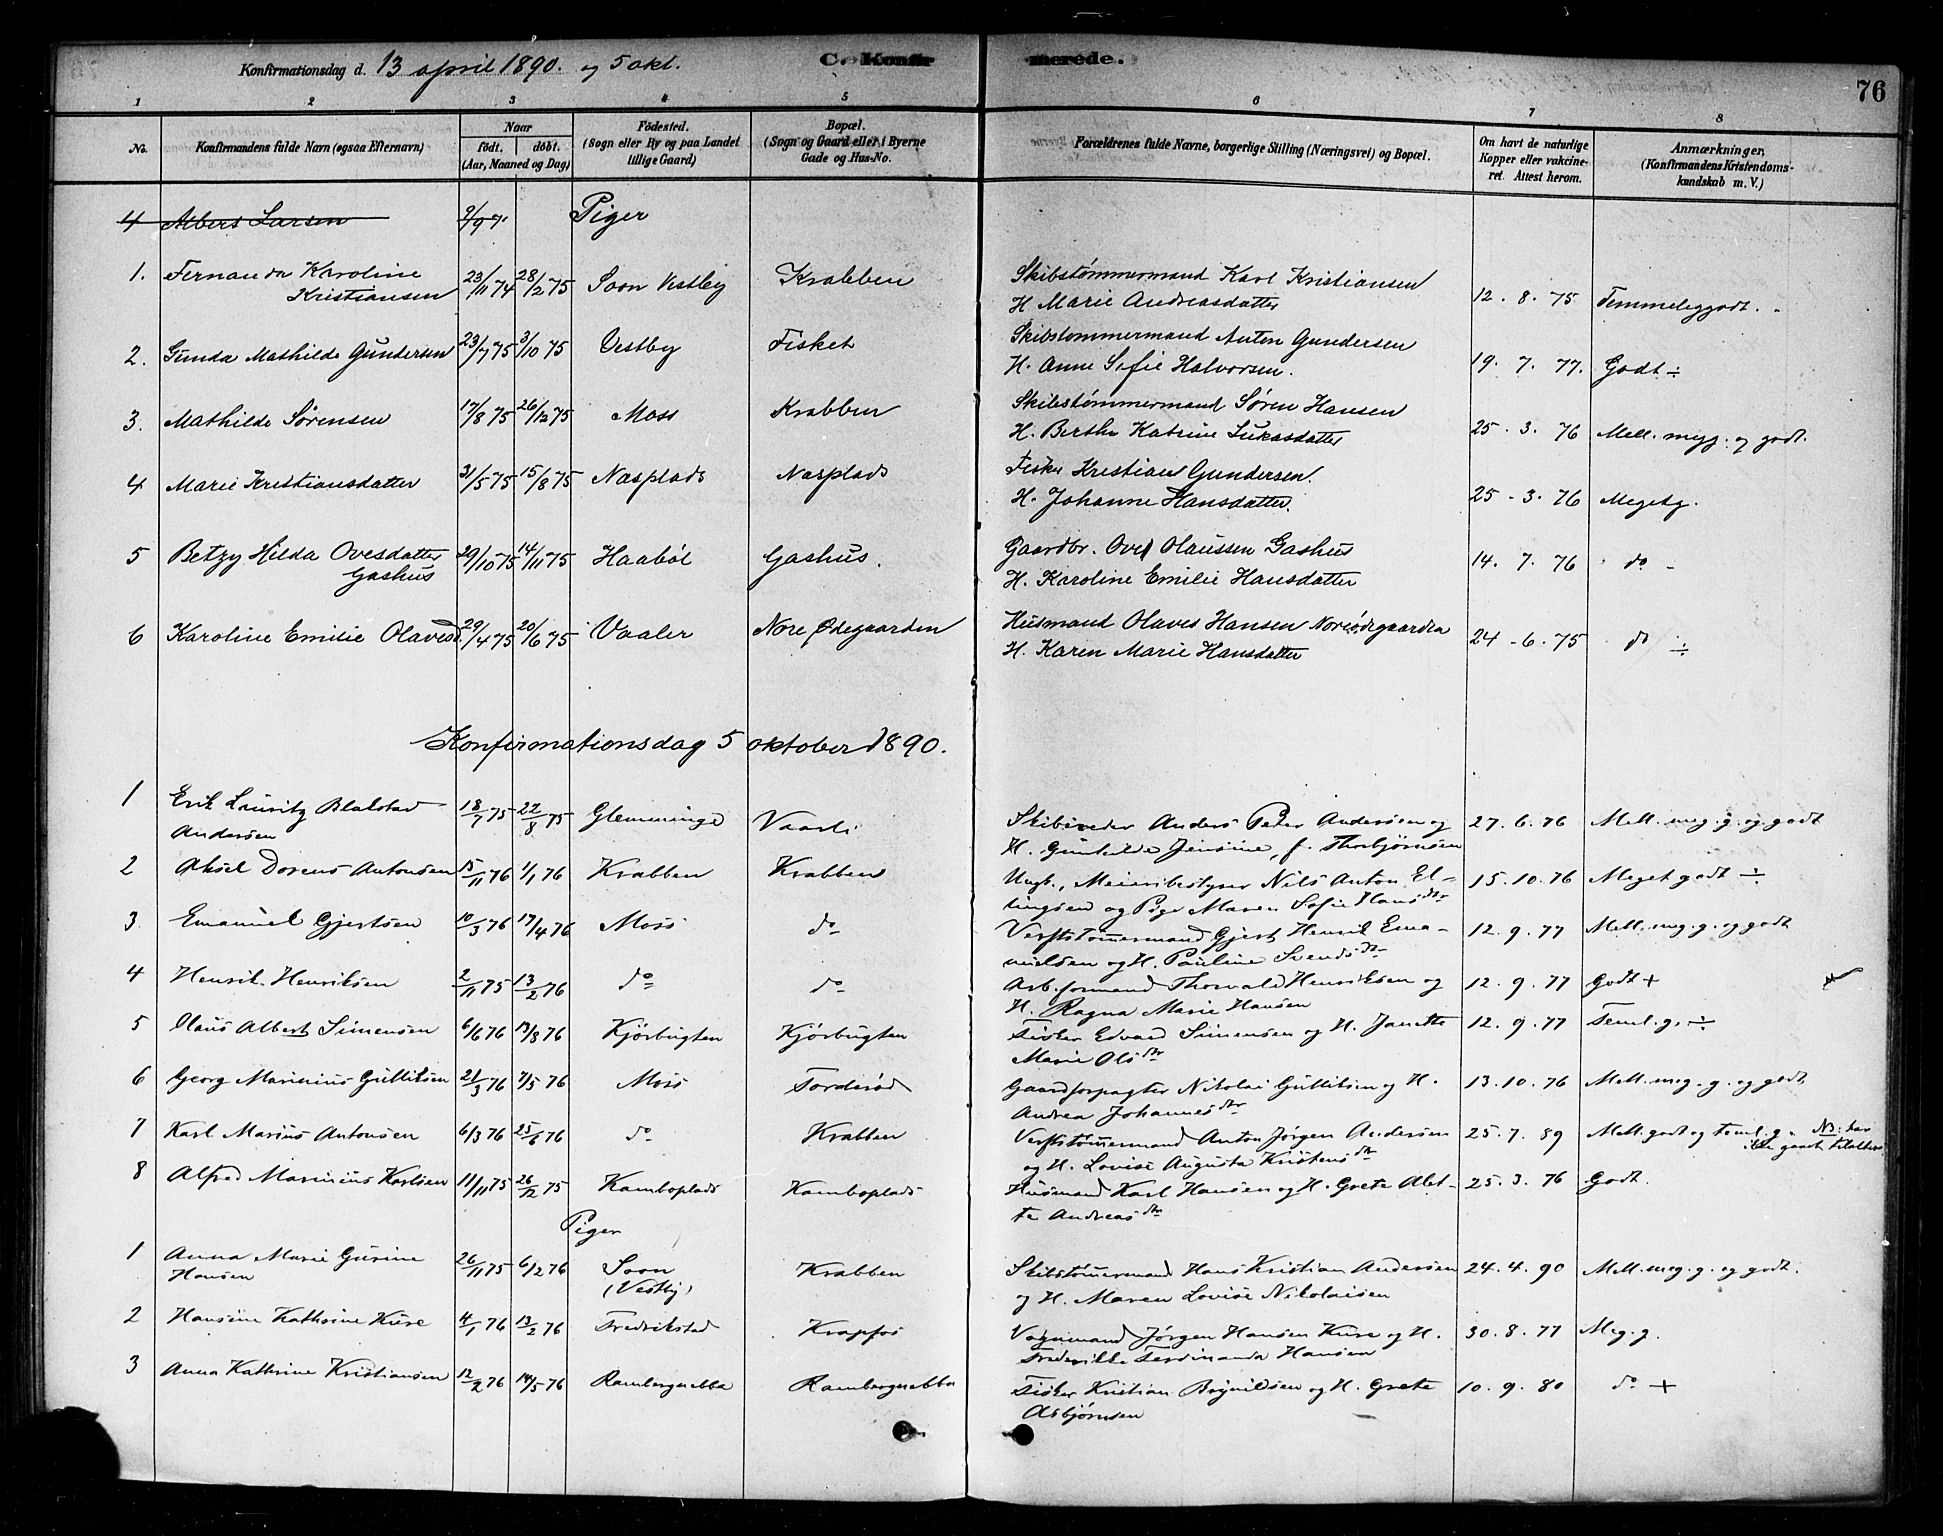 Konfirmationsdag d. 13 april 1890. og 5 okt. C. Konfirmerede. 76
1 2 3 4 5 6 7 8
No. Konfirmandens fulde Navn (ogsaa Efternavn) Naar født. døbt. (Aar, Maaned og Dag) Fødested. (Sogn eller By og paa Landet tillige Gaard) Bopæl. (Sogn og Gaard eller i Byerne Gade og Hus-No. Forældrenes fulde Navne, borgerlige Stilling (Næringsvei) og Bopæl. Om havt de naturlige Kopper eller vakcineret. Attest herom. Anmærkninger, (Konfirmandens Kristendomskundskab m. V.)
4 Albers Larsen
Piger
1. Fernanda Karoline 23/11 74 28/2 75 Soon Vestby Krabben Skibstømmermand Karl Kristiansen 12. 8. 75 Temmeliggodt.
Kristiansen H Marie Andreasdatter
2. Gunda Mathilde Gundersen 23/7 75 3/10 75 Vestby Fisket Skibstømmermand Anton Gundersen 19. 7. 77. Godt ÷
H. Anne Sofie Halvorsen.
3. Mathilde Sørensen 17/8 75 26/12 75 Moss Krabben Skibstømmermand Søren Hansen 25. 3. 76 Mell. meg. og godt.
H. Berthe Katrine Lukasdatter
4 Marie Kristiansdatter 31/5 75 15/8 75 Nasplads Nasplads Fisker Kristian Gundersen. 25 - 3. 76 Megetg.
H. Johanne Hansdatter.
5 Betzy Hilda Ovesdatter 29/10 75 14/11 75 Haabøl Gashus. Gaardbr. Ove Olaussen Gashus 14. 7. 76 do -
Gashus H. Karoline Emilie Hansdatter
6 Karoline Emilie Olavesd. 29/4 75 20/6 75 Vaaler Nore Ødegaarden Husmand Olaves Hansen Noreødegaarden 24 - 6. 75 do ÷
H. Karen Marie Hansdatter
Konfirmationsdag 5 oktober 1890.
1 Erik Lauritz Blakstad 18/7 75 22/8 75 Glemminge Vaarli Skibsreder Anders Peder Andersen og 27. 6. 76 Mell. meg. g. og godt
Andersen H. Gunhilde Jensine, f. Thorbjørnsen
2 Aksel Dorens Antonsen 15/11 76 1/1 76 Krabben Krabben Ungk., Meieribestyrer Nils Anton El- 15. 10. 76 Meget godt ÷
lingsen og Pige Maren Sofie Hansdtr
3 Emanuel Gjertsen 10/3 76 17/4 76 Moss do Verftstømmermand Gjert Henrik Ema- 12. 9. 77 Mell. meg. g. og godt
nuelsen og H. Pauline Svendsdtr
4 Henrik Henriksen 2/11 75 13/2 76 do do Arb.formand Thorvald Henriksen og 12. 9. 77 Godt +
H. Ragna Marie Hansen
5 Olaus Albert Simensen 6/6 76 13/8 76 Kjørbugten Kjørbugten Fisker Edvard Simensen og H. Janette 12. 9. 77 Teml. g. ÷
Marie Olsdtr
6 Georg Marinius Gullitsen 21/3 76 7/5 76 Moss Torderød Gaardforpagter Nikolai Gullitsen og H. 13. 10. 76 Mell. meg. g. og godt
Andrea Johannesdtr
7 Karl Marius Antonsen 6/3 76 25/6 76 do Krabben Verftstømmermand Anton Jørgen Andersen 25. 7. 89 Mell. godt og teml. g. NB: har
og H. Lovise Augusta Kristensdtr ikke gaaet tilalters
8 Alfred Marinius Karlsen 11/11 75 26/12 75 Kamboplads Kamboplads Husmand Karl Hansen og H. Grete Alet- 25. 3. 76 Godt.
te Andreasdtr
Piger
1 Anna Marie Gurine 26/11 75 6/2 76 Soon Krabben Skibstømmermand Hans Kristian Andersen 24. 4. 90 Mell. meg. g. og godt.
Hansen (Vestby) og H. Maren Lovise Nikolaisen
2 Hansine Kathrine Kure 4/1 76 13/2 76 Fredrikstad Krapfos Vognmand Jørgen Hansen Kure og H. 30. 8. 77 Meg. g.
Frederikke Ferdinanda Hansen
3 Anna Kathrine Kristiansen 12/2 76 14/5 76 Rambergnebba Rambergnebba Fisker Kristian Brynildsen og H. Grete 10. 9. 80 do +
Asbjørnsen